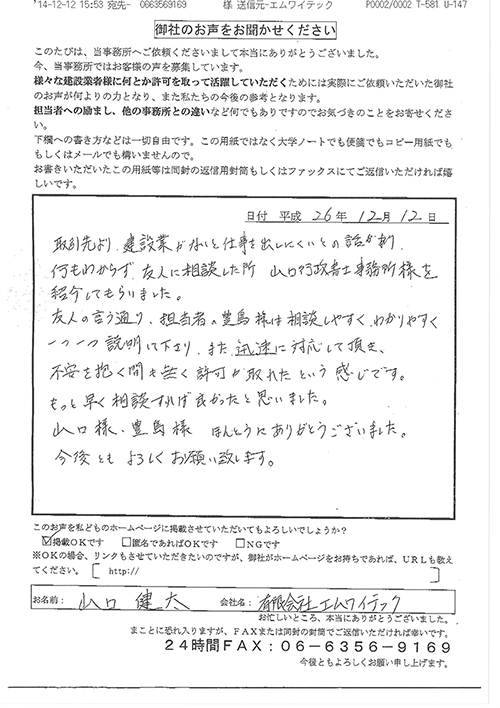 '14-12-12 15:53 宛先- 0663569169 様 送信元-エムワイテック P0002/0002 T-581 U-147
御社のお声をお聞かせください
このたびは、当事務所へご依頼くださいまして本当にありがとうございました。
今、当事務所ではお客様の声を募集しています。
様々な建設業者様に何とか許可を取って活躍していただくためには実際にご依頼いただいた御社
のお声が何よりの力となり、また私たちの今後の参考となります。
担当者への励まし、他の事務所との違いなど何でもありですのでお気づきのことをお寄せくださ
い。
下欄への書き方などは一切自由です。この用紙ではなく大学ノートでも便箋でもコピー用紙でも
もしくはメールでも構いませんので。
お書きいただいたこの用紙等は同封の返信用封筒もしくはファックスにてご返信いただければ嬉
しいです。
日付 平成 26年 12月 12日
取引先より、建設業がないと仕事を出しにくいとの話があり、
何もわからず、友人に相談した所 山口行政書士事務所様を
紹介してもらいました。
友人の言う通り、担当者の豊島様は相談しやすく、わかりやすく
一つ一つ説明して下さり、また迅速に対応して頂き、
不安を抱く間も無く許可が取れたという感じです。
もっと早く相談すれば良かったと思いました。
山口様、豊島様 ほんとうにありがとうございました。
今後とも よろしくお願い致します。
このお声を私どものホームページに掲載させていただいてもよろしいでしょうか?
☑掲載OKです □匿名であればOKです □NGです
※OKの場合、リンクもさせていただきたいのですが、御社がホームページをお持ちであれば、URLも教え
てください。 [ http:// ]
お名前: 山口 健太 会社名: 有限会社エムワイテック
お忙しいところ、本当にありがとうございました。
まことに恐れ入りますが、FAXまたは同封の封筒でご返信いただければ幸いです。
24時間FAX:06-6356-9169
今後ともよろしくお願い申し上げます。